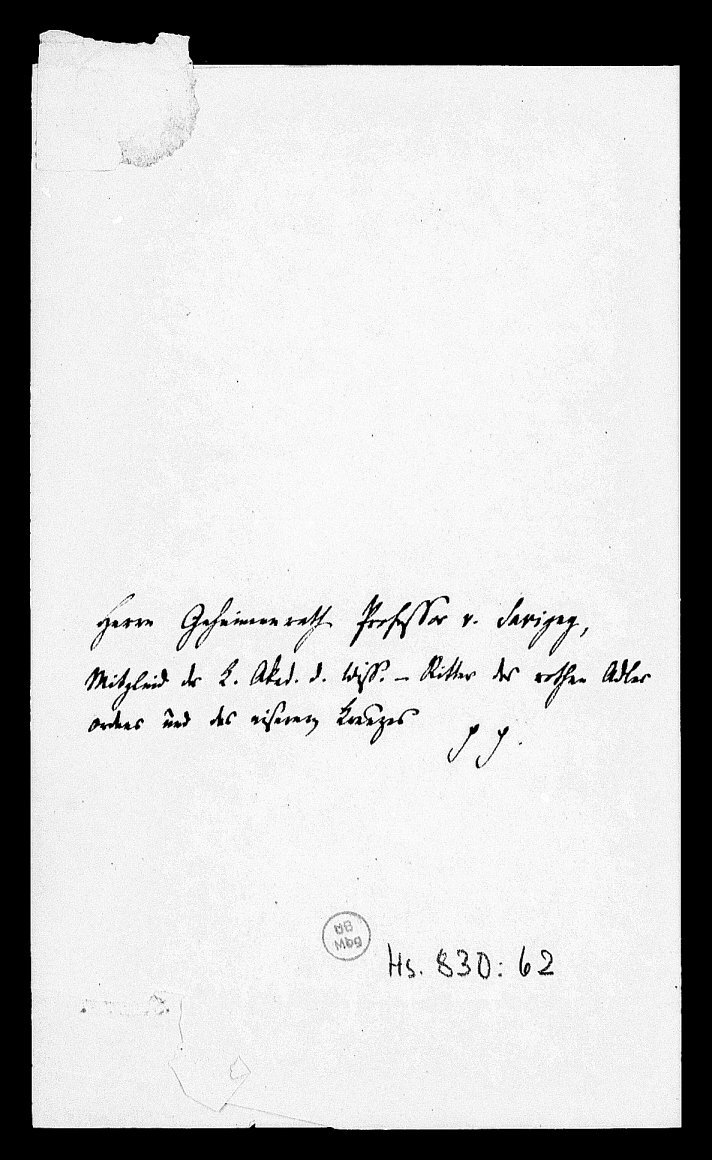 Herrn Geheimenrath Professor v. Savigny,
Mitglied der K. Akad. d. Wiss. – Ritter des rothen Adler
ordens und des eisernen Kreuzes
p p.
UB
Mbg
Hs. 830: 62